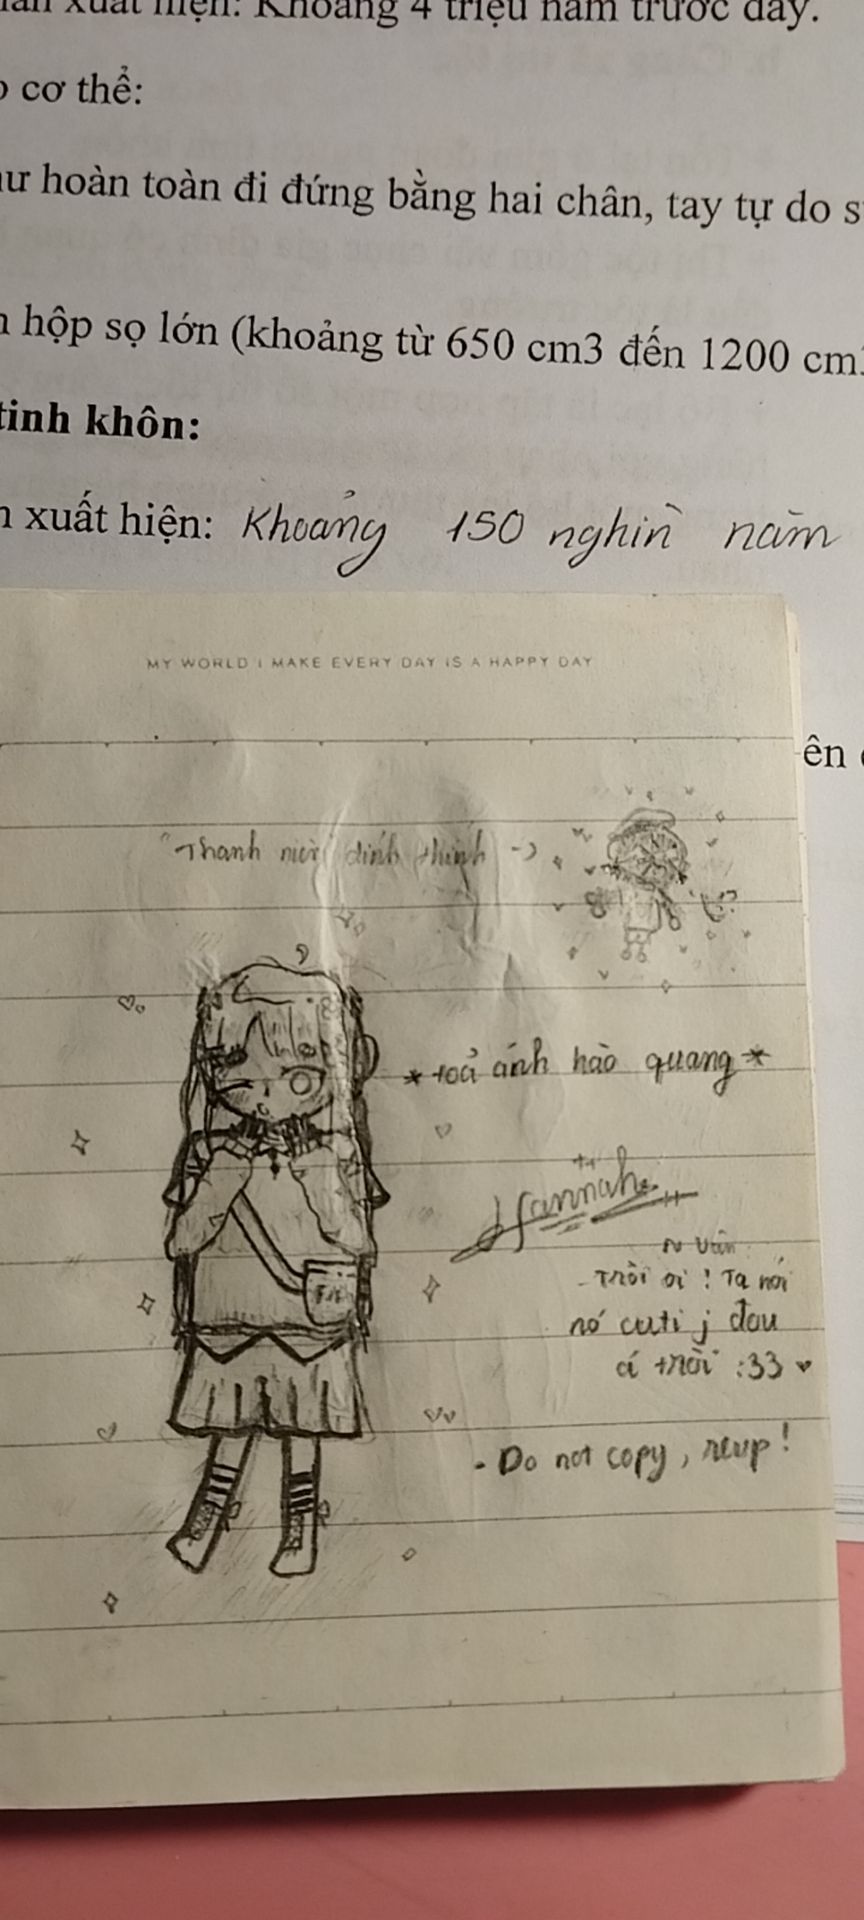 xuất hiện: Khoảng 4 triệu năm trước đây.
cơ thể:
hoàn toàn đi đứng bằng hai chân, tay tự do
hộp sọ lớn (khoảng từ 650 cm3 đến 1200
tinh khôn:
xuất hiện: Khoảng 150 nghìn năm
MY WORLD I MAKE EVERY DAY IS A HAPPY DAY
ên
"Thanh niên dính thính ->
*toả ánh hào quang*
Hannah
~ Vân
- Trời ơi! Ta nói
nó cuti j đou
á trời :33
- Do not copy, reup!